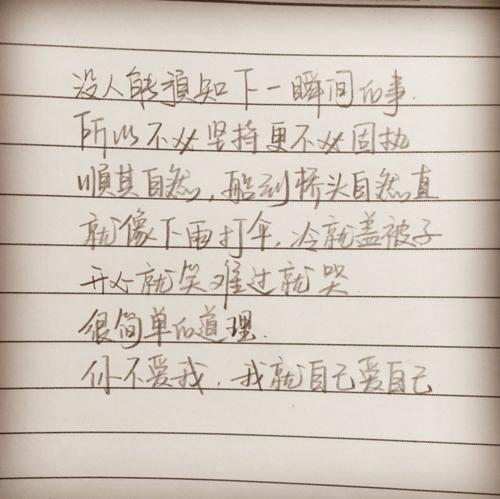 没人能預知下一瞬间的事.
所以不必坚持更不必固执
順其自然，船到桥头自然直
就像下雨打伞，冷就盖被子
开心就笑难过就哭
很简单的道理.
你不爱我，我就自己爱自己